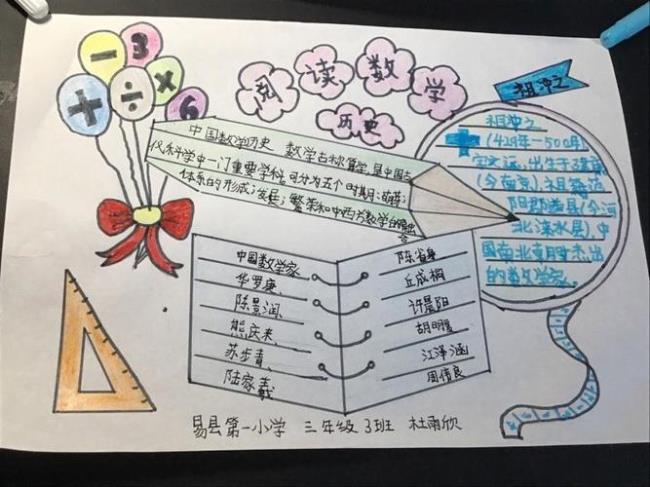 - 3
+ ÷ × 6
阅读数学
历史
祖冲之
中国数学历史 数学古称算学,是中国古
代科学中一门重要学科,可分为五个时期:萌芽;
体系的形成;发展;繁荣和中西方数学的融合
祖冲之
(429年—500年)
字文远,出生于建康
(今南京),祖籍范
阳郡遒县(今河
北涞水县),中
国南北朝杰出
的数学家
中国数学家
华罗庚、
陈景润、
熊庆来、
苏步青、
陆家羲
陈省身
丘成桐
许晨阳
胡明复
江泽涵
周伟良
易县第一小学 三年级3班 杜雨欣